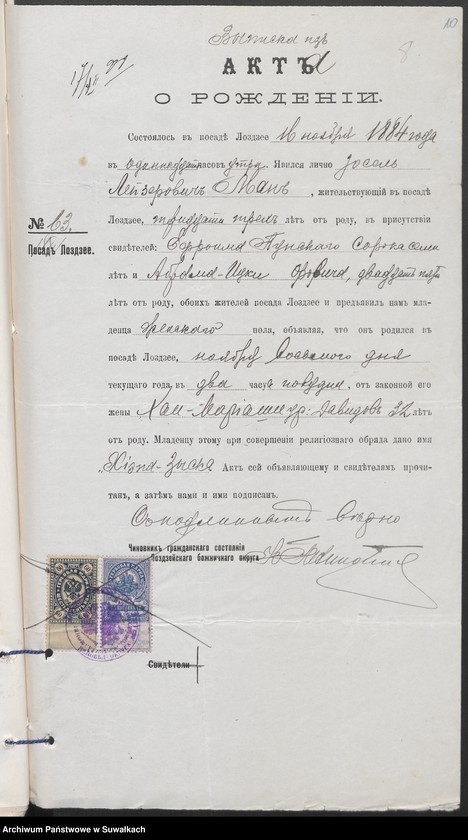 10
8
Выписка изъ
АКТЪ
О РОЖДЕНІИ.
Состоялось въ посадѣ Лоздзее 16 ноября 1884 года
въ одиннадцать часовъ утра. Явился лично Зосель
Лейзеровичъ Манъ, жительствующій въ посадѣ
№ 63.
Посадъ Лоздзее.
Лоздзее, тридцати трехъ лѣтъ отъ роду, въ присутствіи
свидѣтелей: Эфроима Пунскаго Сорока семи
лѣтъ и Абрама-Ицки двадцать пяти
лѣтъ отъ роду, обоихъ жителей посада Лоздзее и предъявилъ намъ мла-
денца женскаго пола, объявляя, что онъ родился въ
посадѣ Лоздзее, ноября Восьмого дня
текущаго года, въ два часа пополудни, отъ законной его
жены Хаи-Маріаши ур: Давидовъ 32 лѣтъ
отъ роду. Младенцу этому при совершеніи религіознаго обряда дано имя
Актъ сей объявляющему и свидѣтелямъ прочи-
танъ, а затѣмъ нами и ими подписанъ.
Съ подлиннымъ вѣрно
Чиновникъ гражданскаго состоянія
Лоздзейскаго божничнаго округа
Свидѣтели
Archiwum Państwowe w Suwałkach